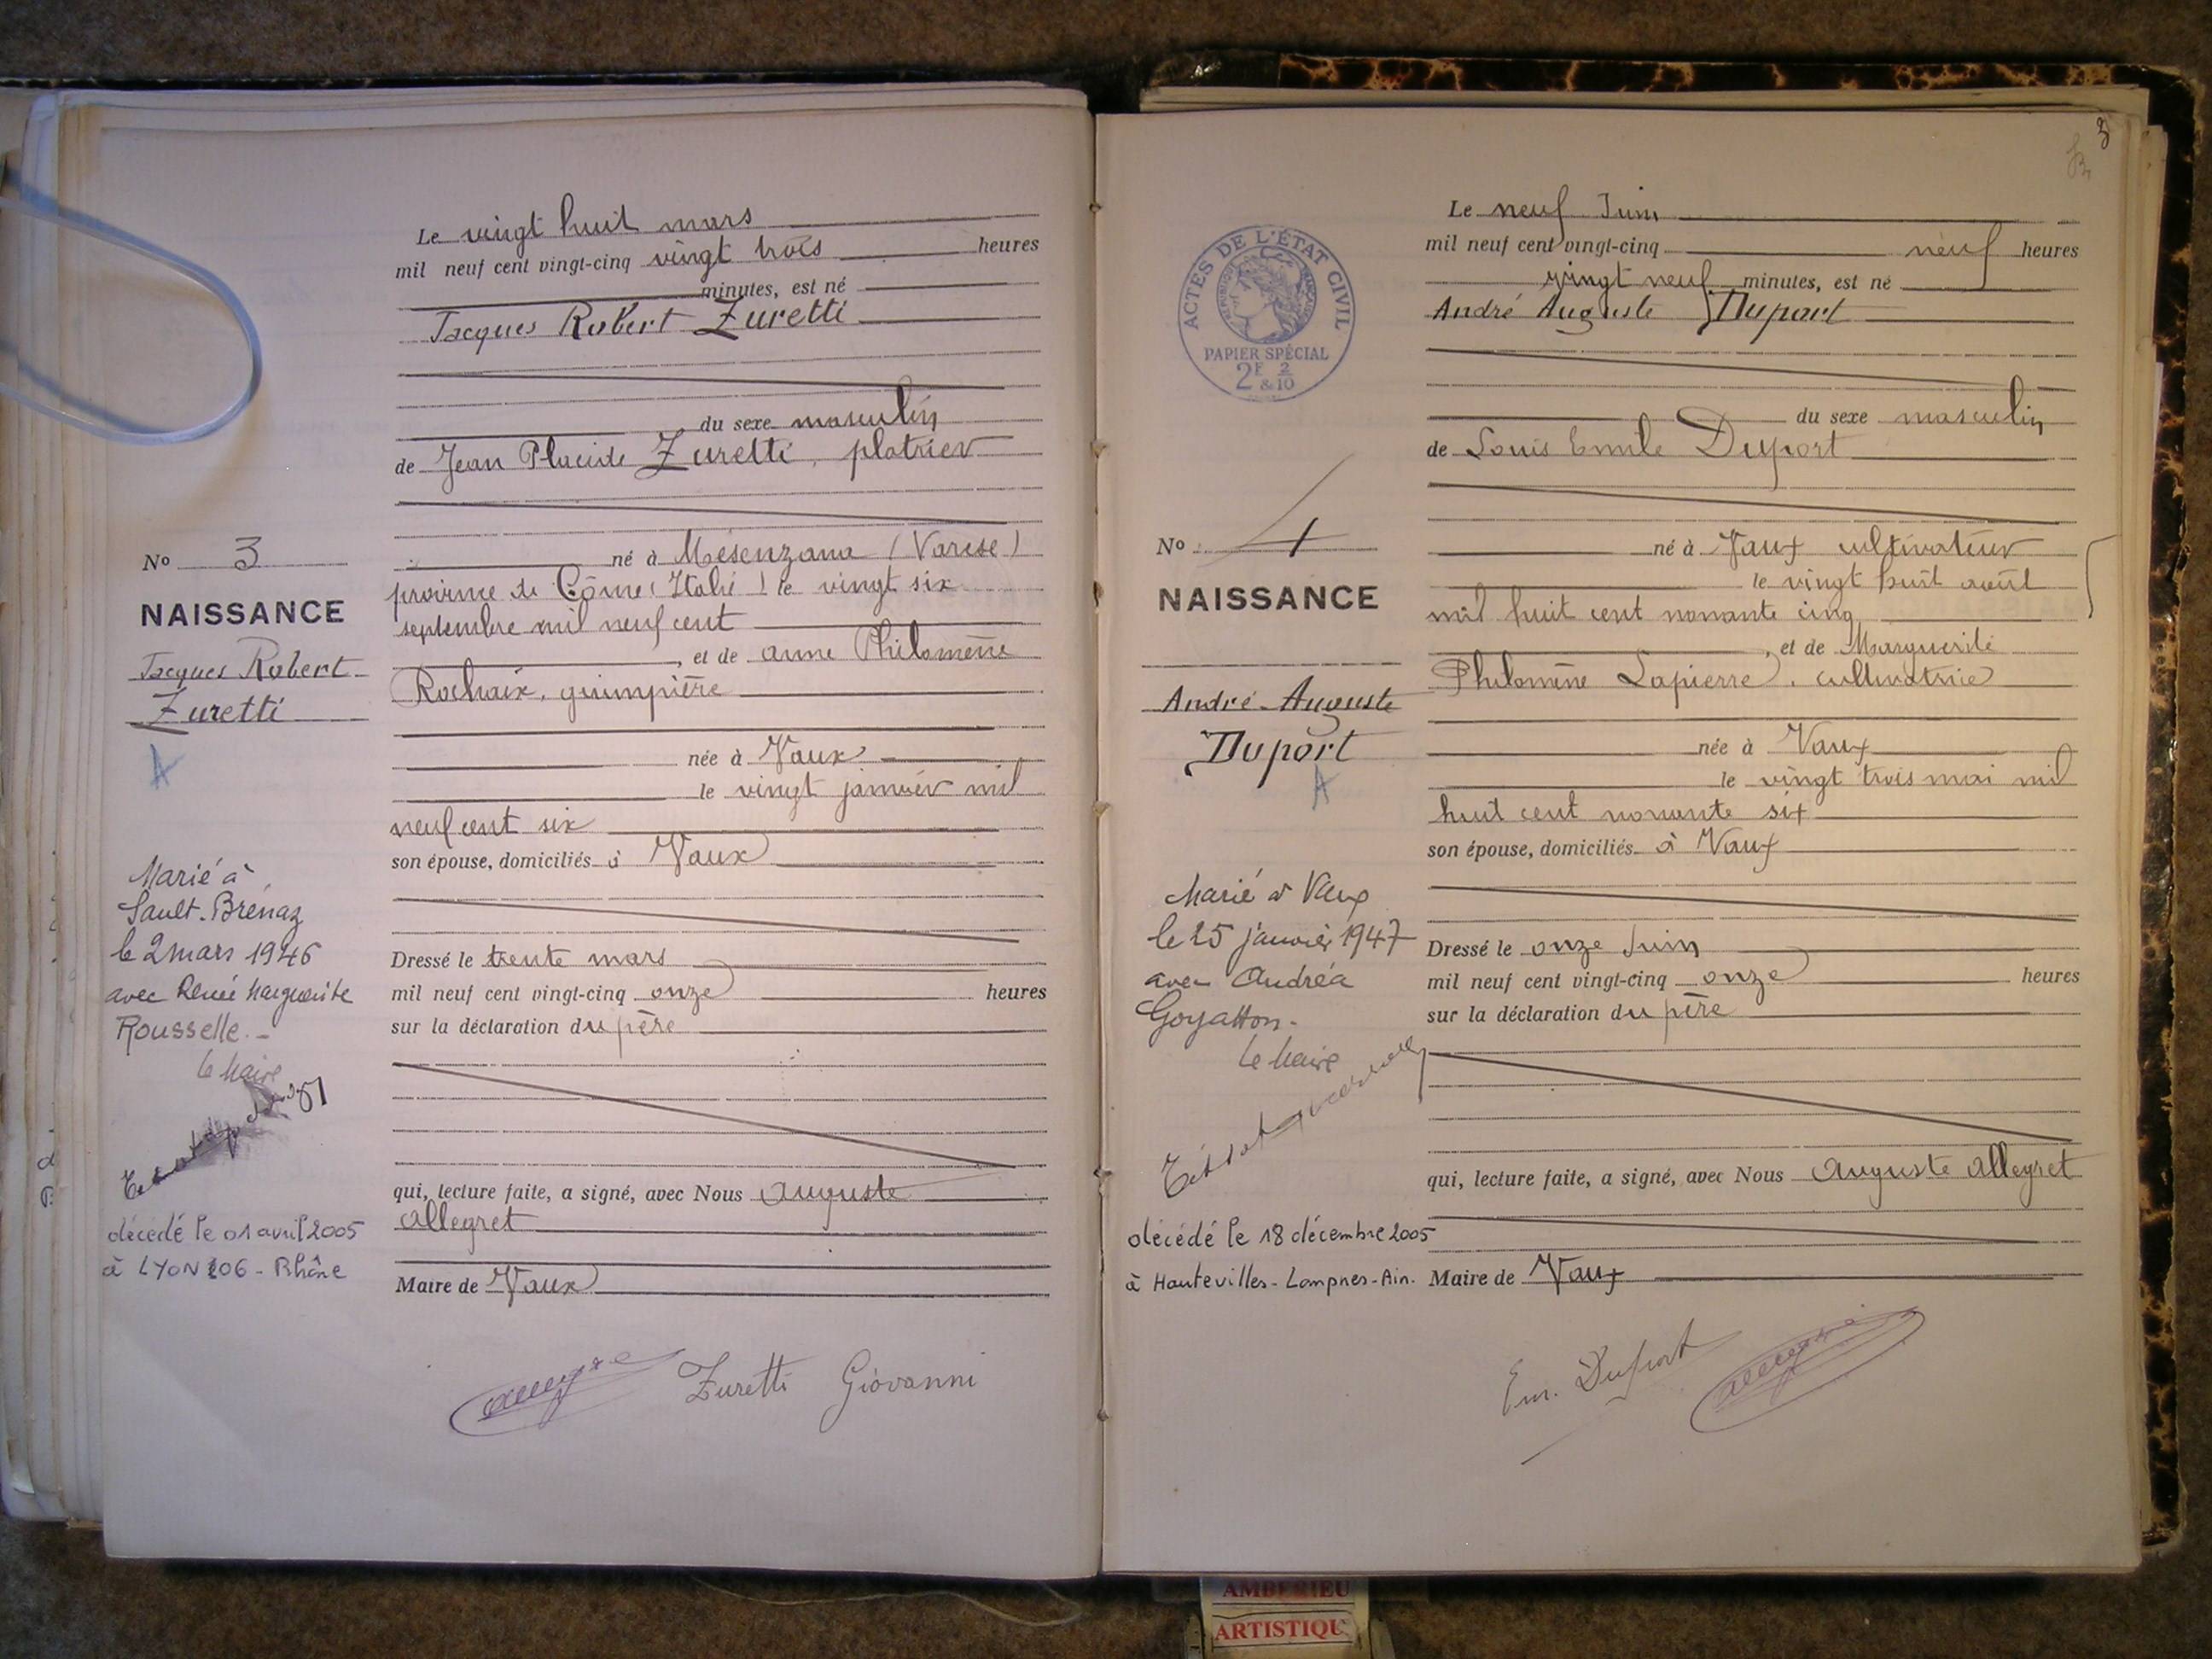 Le vingt huit mars
mil neuf cent vingt-cinq vingt trois heures
minutes, est né
Jacques Robert Zuretti
du sexe masculin
de Jean Placide Zuretti, platrier
né à Mésenzana (Varese)
province de Côme (Italie) le vingt six
septembre mil neuf cent
, et de anne Philomène
Rochaix, guimpière
née à Vaux
le vingt janvier mil
neuf cent six
son épouse, domiciliés à Vaux
Dressé le trente mars
mil neuf cent vingt-cinq onze heures
sur la déclaration du père
qui, lecture faite, a signé, avec Nous Auguste
Allegret
Maire de Vaux
Zuretti Giovanni
No 3
NAISSANCE
Jacques Robert
Zuretti
A
Marié à
Sault-Brénaz
le 2 mars 1946
avec Renée Marguerite
Rousselle.-
le Maire
décédé le 01 avril 2005
à LYON 06 - Rhône
3
Le neuf Juin
mil neuf cent vingt-cinq neuf heures
vingt neuf minutes, est né
André Auguste Duport
du sexe masculin
de Louis Emile Duport
né à Vaux cultivateur
le vingt huit août
mil huit cent nonante cinq
, et de Marguerite
Philomène Lapierre, cultivatrice
née à Vaux
le vingt trois mai mil
huit cent nonante six
son épouse, domiciliés à Vaux
Dressé le onze Juin
mil neuf cent vingt-cinq onze heures
sur la déclaration du père
qui, lecture faite, a signé, avec Nous Auguste Allegret
Maire de Vaux
Em. Duport
ACTES DE L'ÉTAT CIVIL
RÉPUBLIQUE FRANÇAISE
PAPIER SPÉCIAL
2F & 2/10
No 4
NAISSANCE
André-Auguste
Duport
A
Marié à Vaux
le 25 janvier 1947
avec Andréa
Goyatton-
le Maire
décédé le 18 décembre 2005
à Hautevilles-Lompnes-Ain.
AMBERIEU
ARTISTIQU